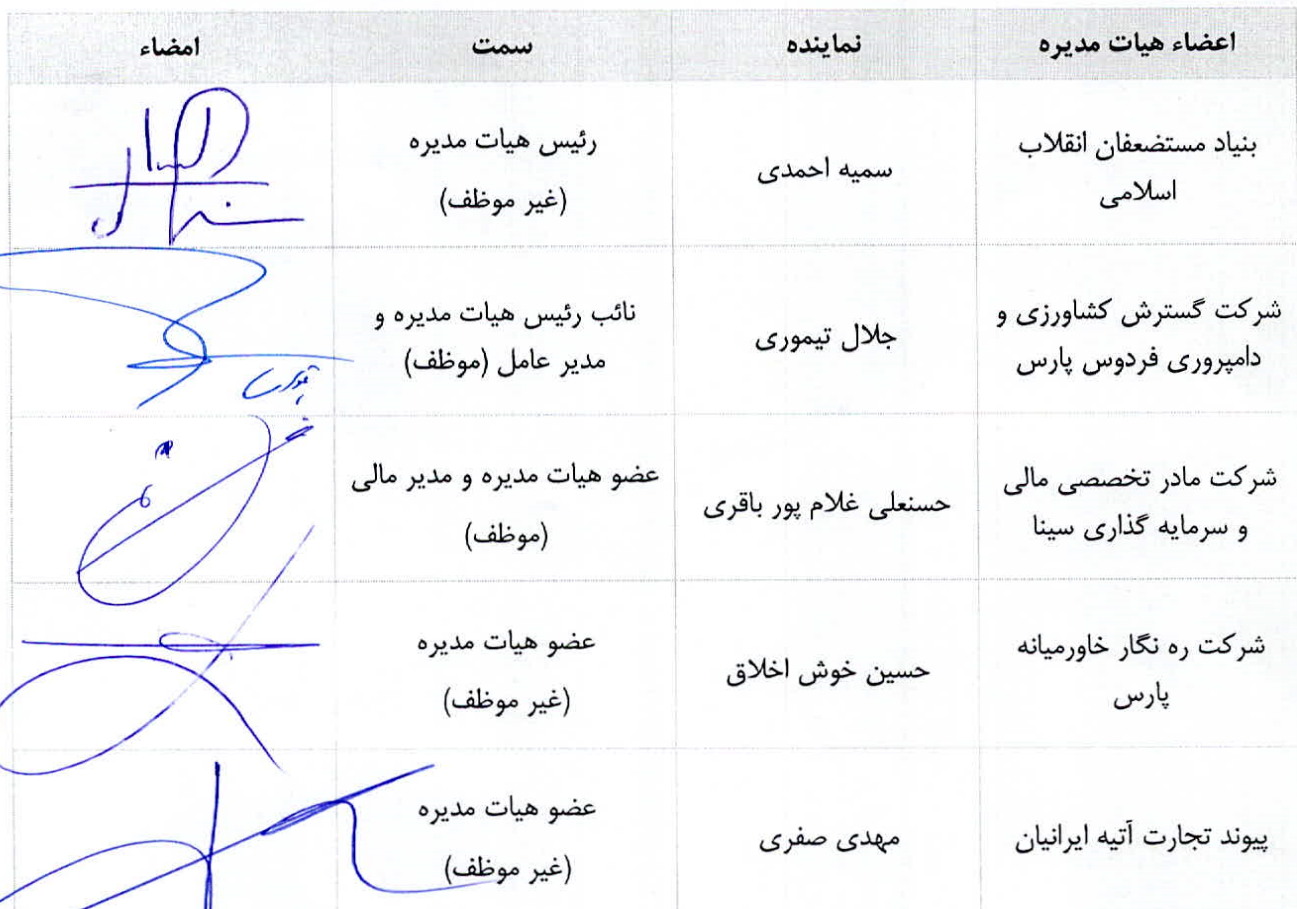 اعضاء هیات مدیره نماینده سمت امضاء
بنیاد مستضعفان انقلاب
اسلامی
سمیه احمدی
رئیس هیات مدیره
(غیر موظف)
شرکت گسترش کشاورزی و
دامپروری فردوس پارس
جلال تیموری
نائب رئیس هیات مدیره و
مدیر عامل (موظف)
شرکت مادر تخصصی مالی
و سرمایه گذاری سینا
حسنعلی غلام پور باقری
عضو هیات مدیره و مدیر مالی
(موظف)
شرکت ره نگار خاورمیانه
پارس
حسین خوش اخلاق
عضو هیات مدیره
(غیر موظف)
پیوند تجارت آتیه ایرانیان
مهدی صفری
عضو هیات مدیره
(غیر موظف)